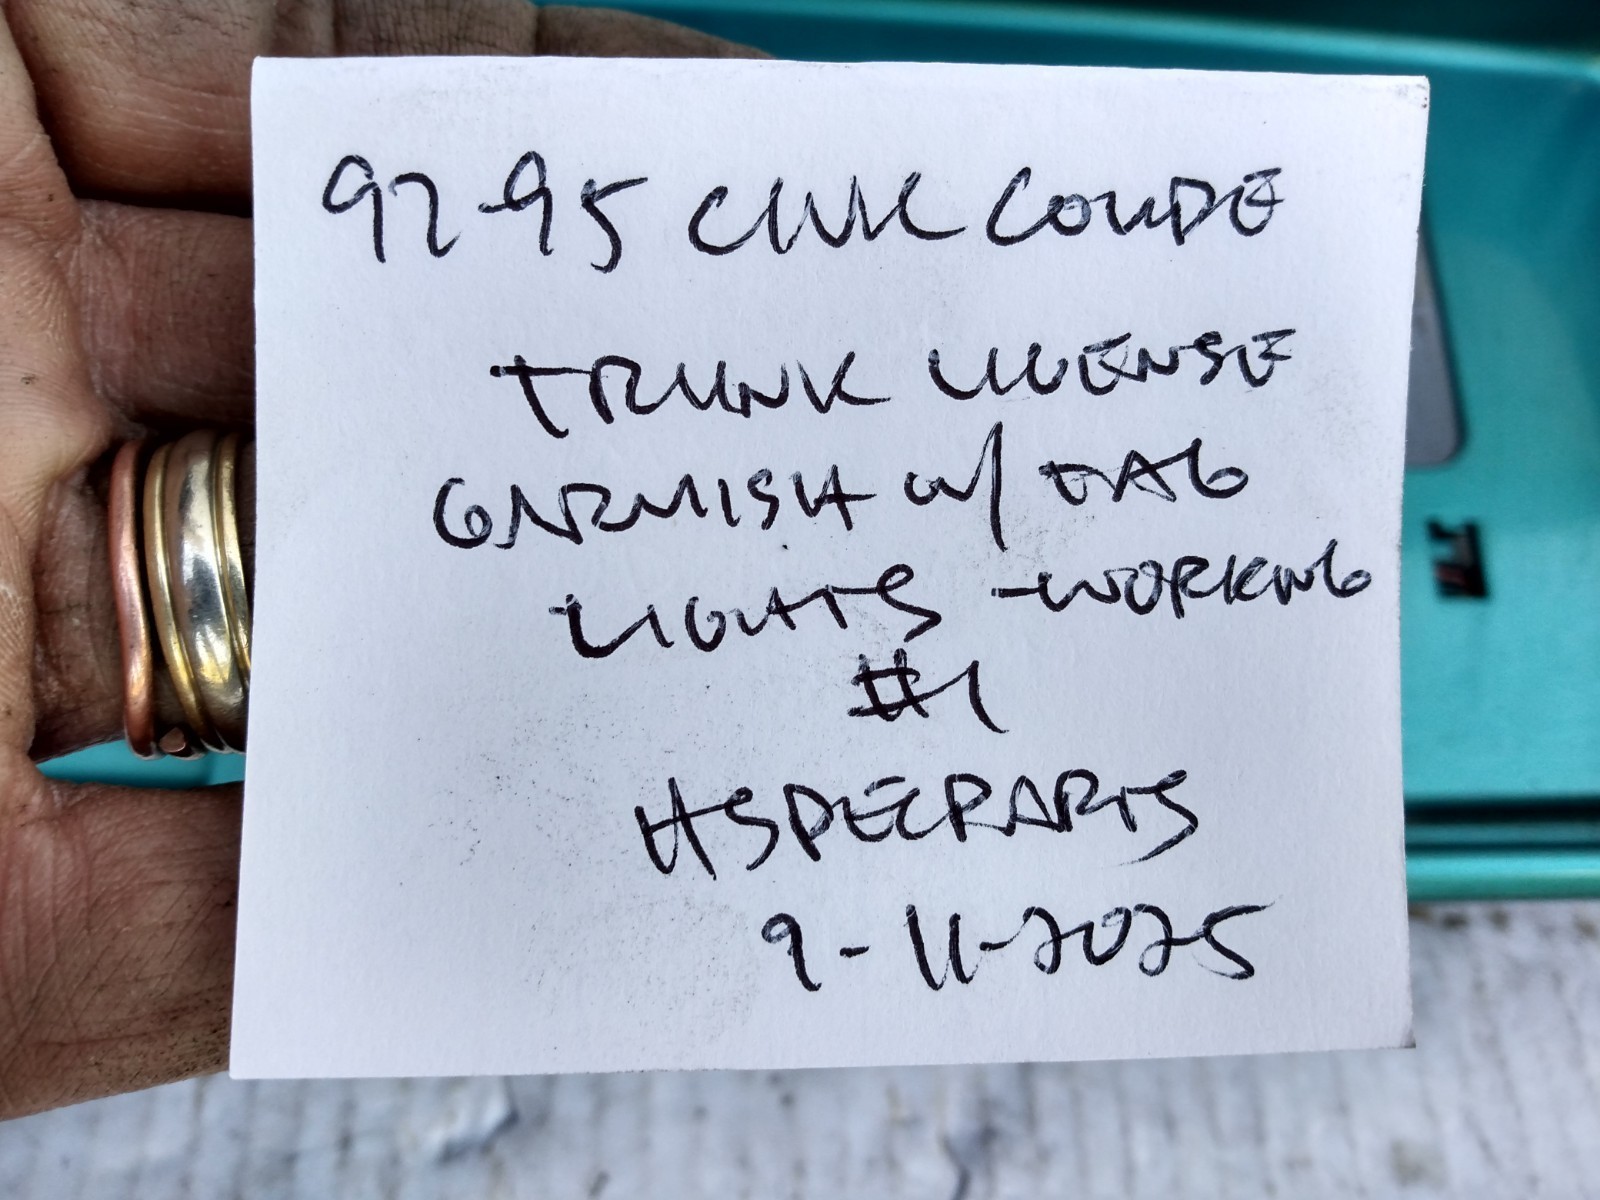 92-95 CIVIC COUPE
TRUNK LICENSE
GARNISH W/ TAG
LIGHTS -WORKING
#1
HSPECPARTS
9-11-2025